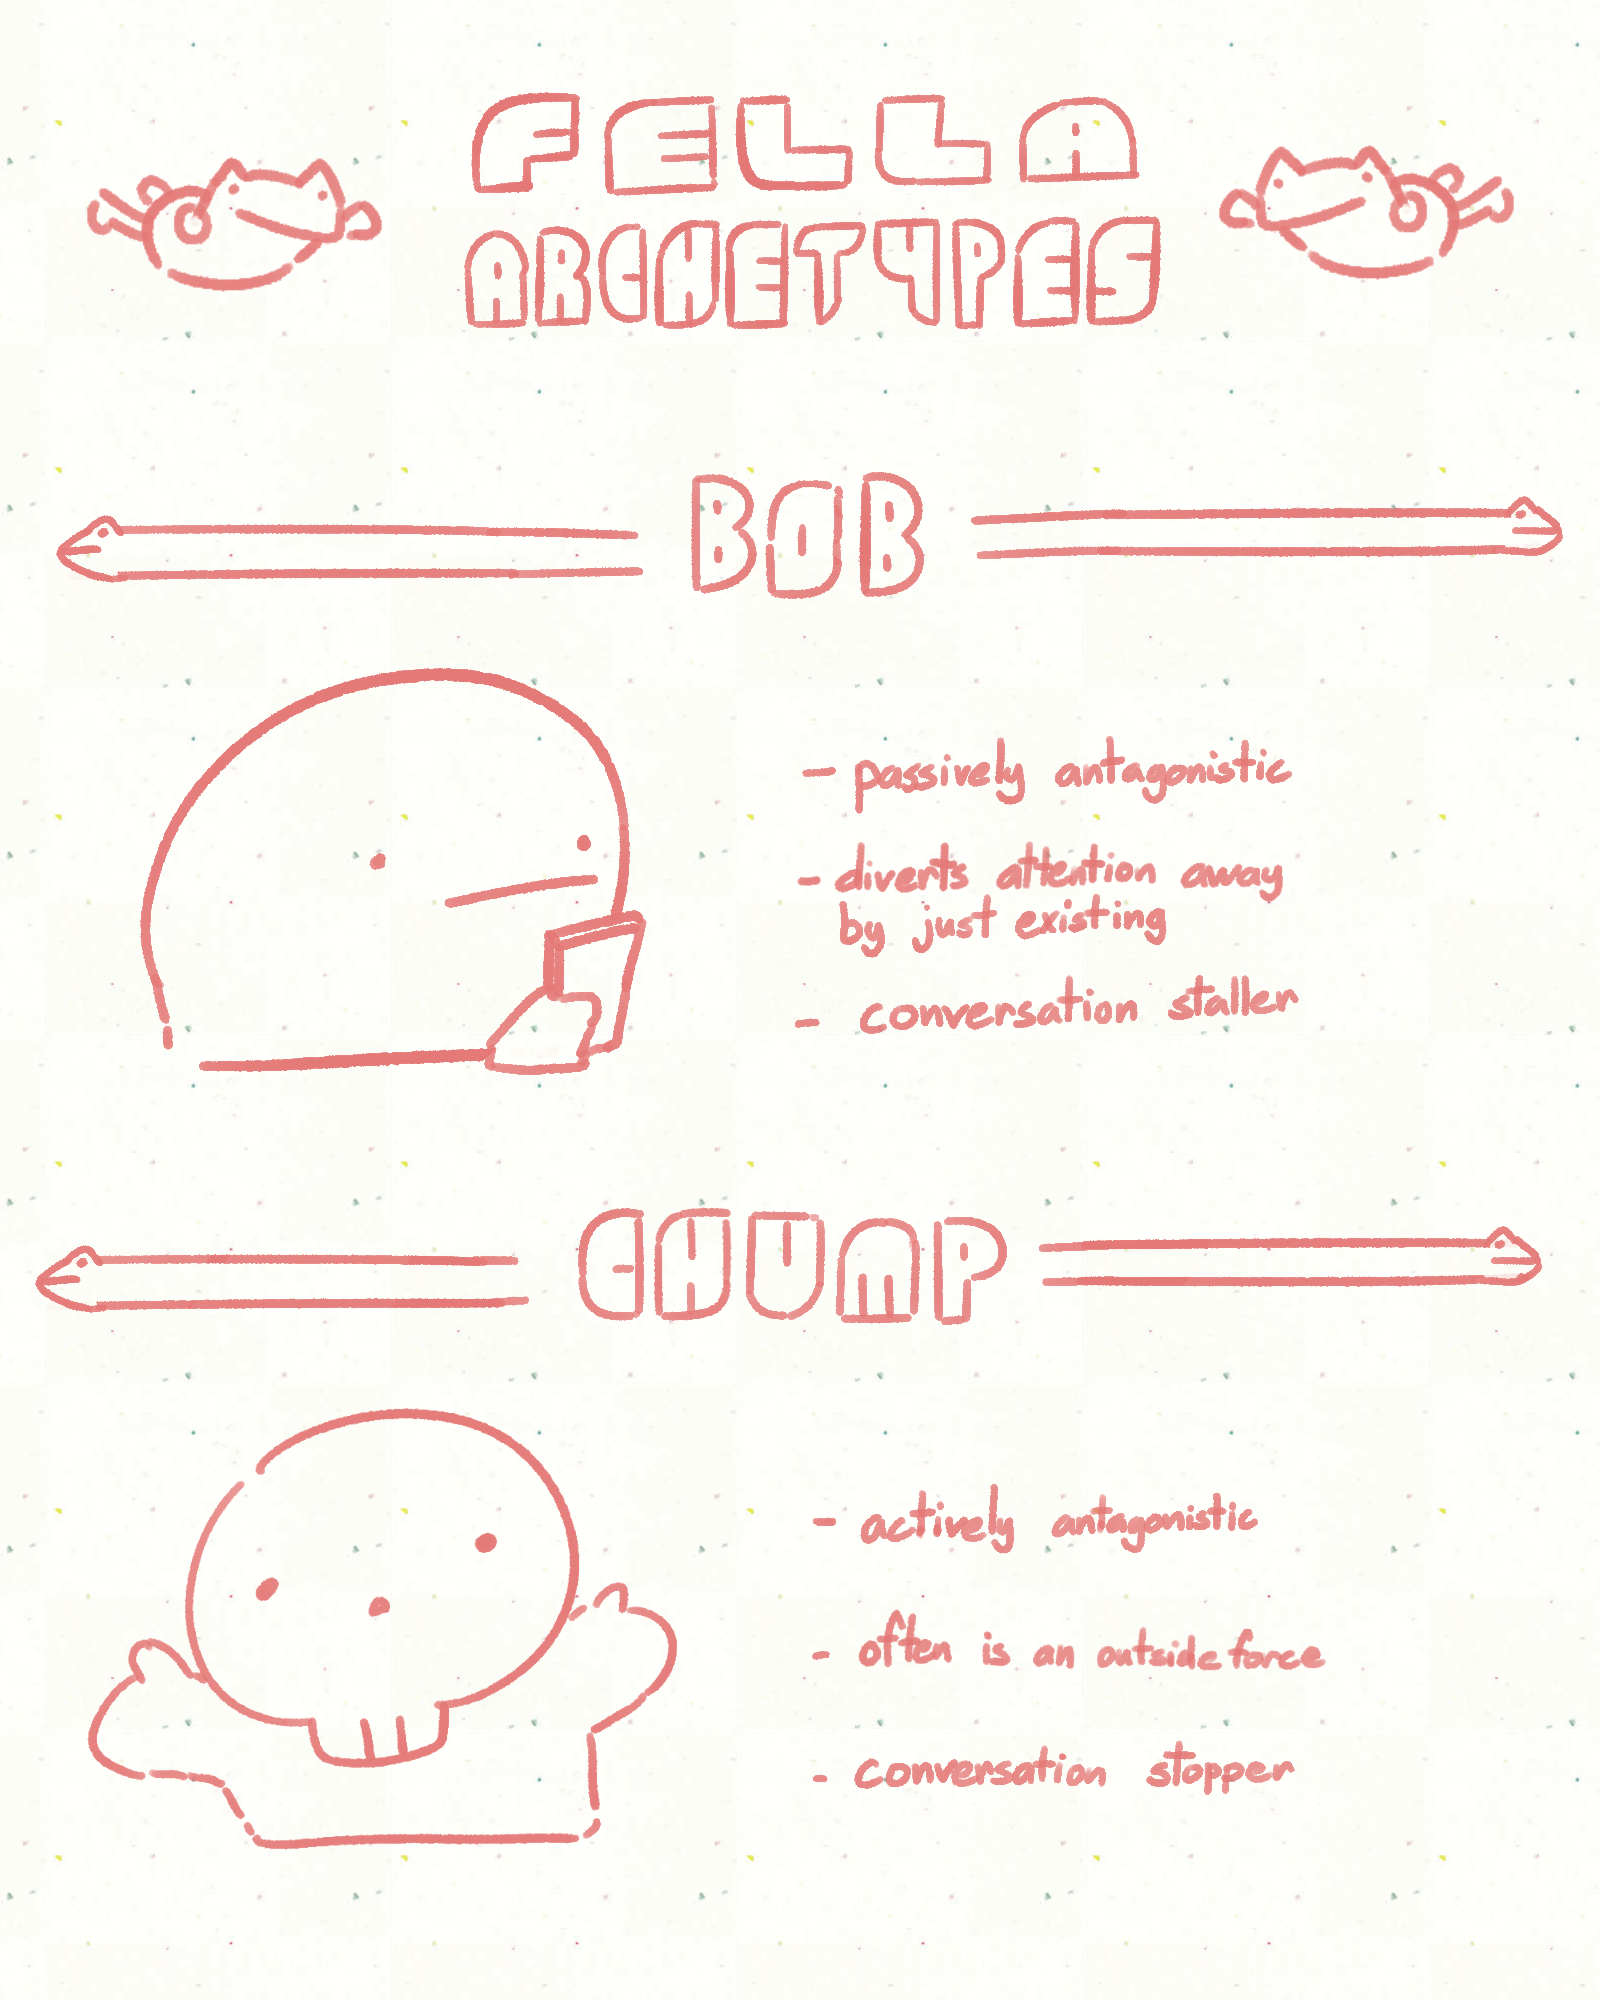 FELLA
ARCHETYPES
BOB
- passively antagonistic
- diverts attention away
by just existing
- conversation staller
CHUMP
- actively antagonistic
- often is an outside force
- conversation stopper